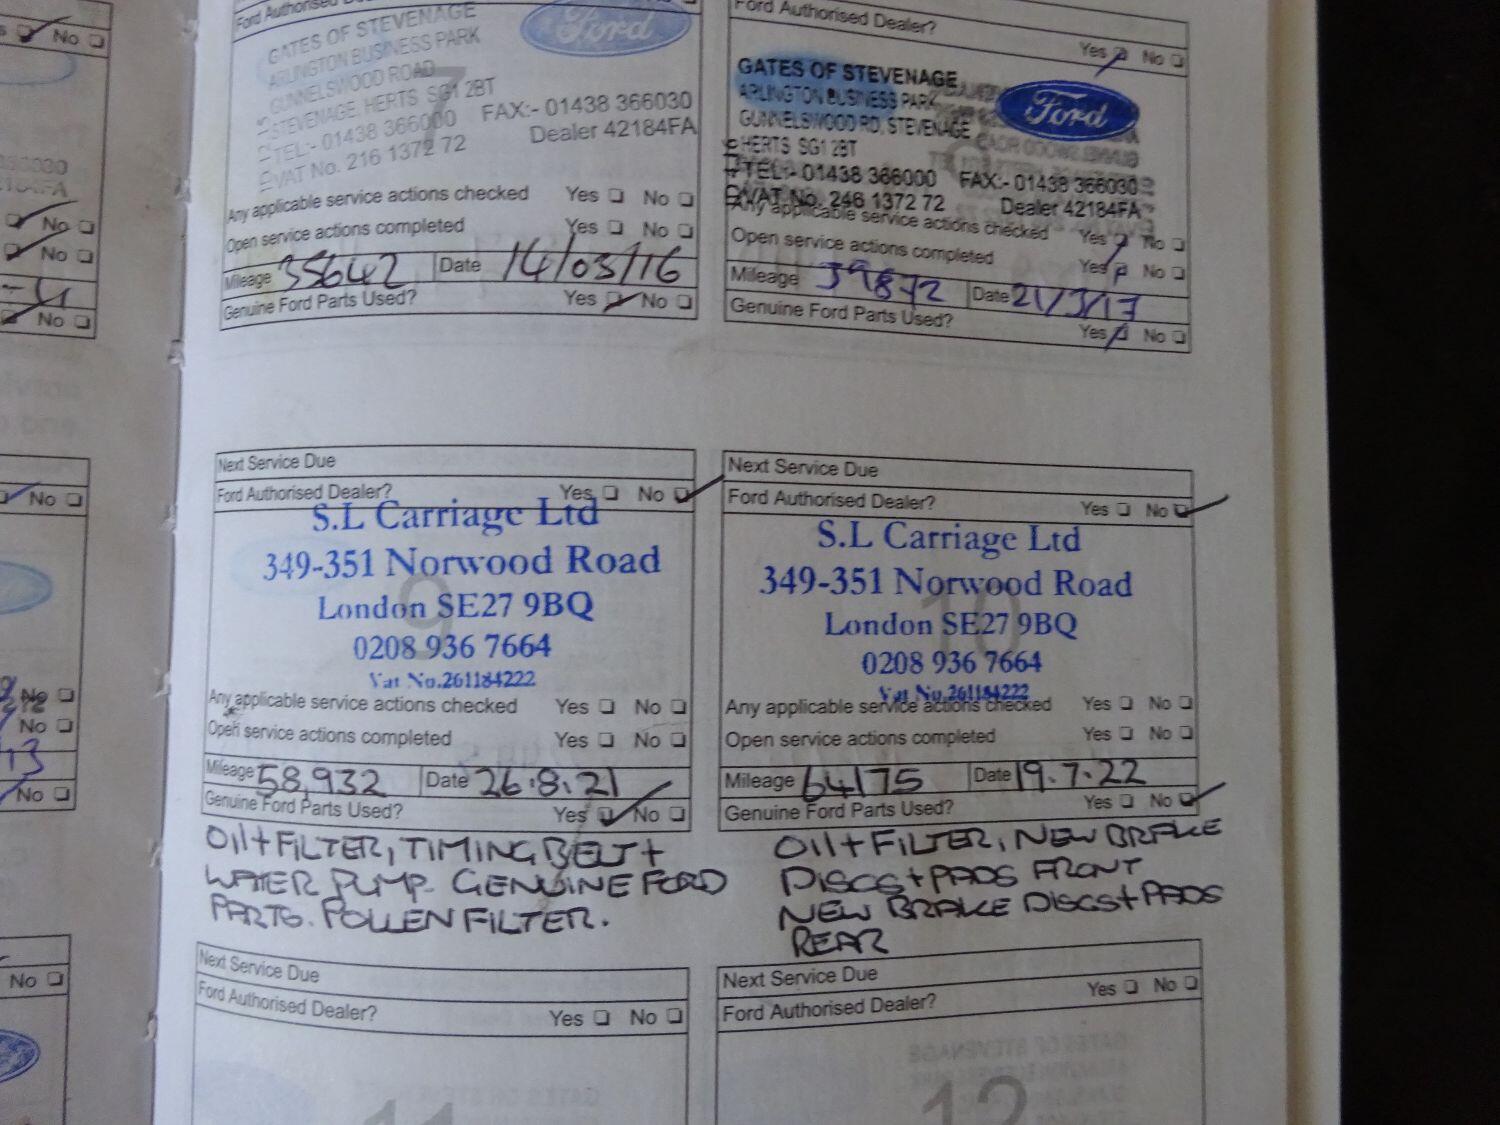 No
Ford Authorised
GATES OF STEVENAGE
ARLINGTON BUSINESS PARK
GUNNELSWOOD ROAD
STEVENAGE, HERTS SG1 2BT
TEL:- 01438 366000 FAX:- 01438 366030
VAT No. 216 1372 72 Dealer 42184FA
Ford
7
Any applicable service actions checked Yes No
Open service actions completed Yes No
Mileage 35642 Date 14/03/16
Genuine Ford Parts Used? Yes No
Ford Authorised Dealer? Yes No
GATES OF STEVENAGE
ARLINGTON BUSINESS PARK
GUNNELSWOOD RD, STEVENAGE
HERTS SG1 2BT
TEL:- 01438 366000 FAX:- 01438 366030
VAT No. 246 1372 72 Dealer 42184FA
Ford
Any applicable service actions checked Yes No
Open service actions completed Yes No
Mileage 39872 Date 21/3/17
Genuine Ford Parts Used? Yes No
Next Service Due
Ford Authorised Dealer? Yes No
S.L Carriage Ltd
349-351 Norwood Road
London SE27 9BQ
0208 936 7664
Vat No.261184222
9
Any applicable service actions checked Yes No
Open service actions completed Yes No
Mileage 58,932 Date 26.8.21
Genuine Ford Parts Used? Yes No
OIL+FILTER, TIMING BELT+
WATER PUMP. GENUINE FORD
PARTS. POLLEN FILTER.
Next Service Due
Ford Authorised Dealer? Yes No
S.L Carriage Ltd
349-351 Norwood Road
London SE27 9BQ
0208 936 7664
Vat No.261184222
10
Any applicable service actions checked Yes No
Open service actions completed Yes No
Mileage 64175 Date 19.7.22
Genuine Ford Parts Used? Yes No
OIL+FILTER, NEW BRAKE
DISCS+PADS FRONT
NEW BRAKE DISCS+PADS
REAR
Next Service Due
Ford Authorised Dealer? Yes No
11
Next Service Due
Ford Authorised Dealer? Yes No
12